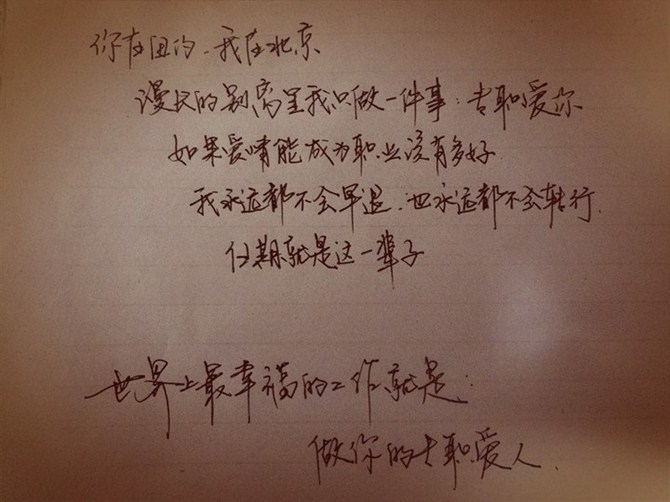 你在纽约、我在北京
漫长的别离里我只做一件事：专职爱你
如果爱情能成为职业该有多好
我永远都不会早退、也永远都不会转行、
任期就是这一辈子
世界上最幸福的工作就是：
做你的专职爱人.